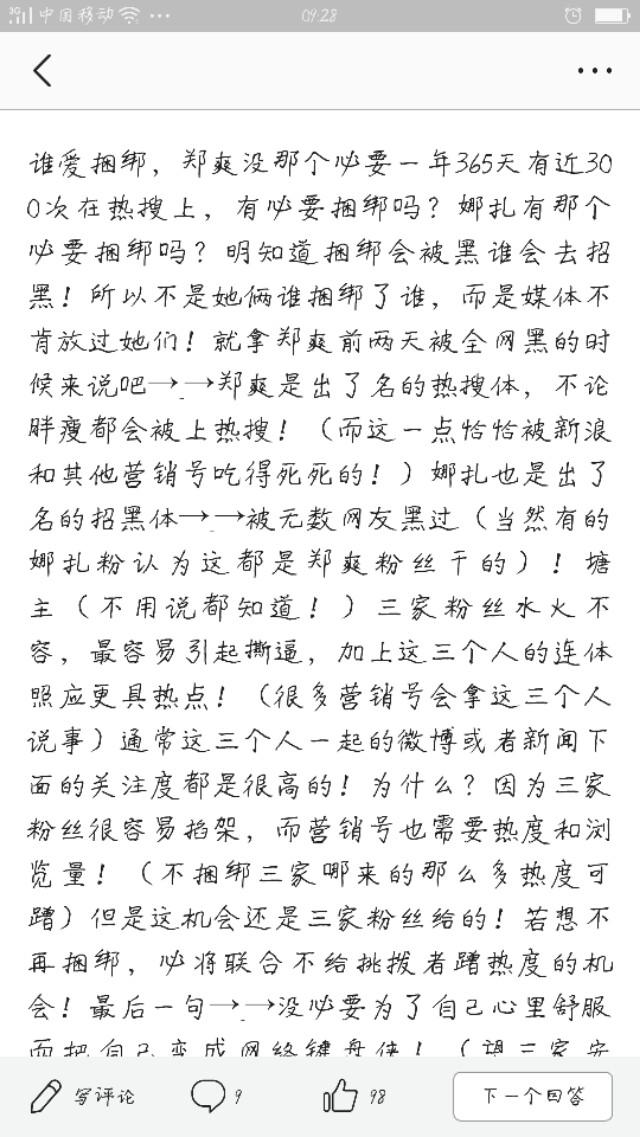 3G 中国移动 ··· 09:28
谁爱捆绑，郑爽没那个必要一年365天有近30
0次在热搜上，有必要捆绑吗？娜扎有那个
必要捆绑吗？明知道捆绑会被黑谁会去招
黑！所以不是她俩谁捆绑了谁，而是媒体不
肯放过她们！就拿郑爽前两天被全网黑的时
候来说吧→_→郑爽是出了名的热搜体，不论
胖瘦都会被上热搜！（而这一点恰恰被新浪
和其他营销号吃得死死的！）娜扎也是出了
名的招黑体→_→被无数网友黑过（当然有的
娜扎粉认为这都是郑爽粉丝干的）！塘
主（不用说都知道！）三家粉丝水火不
容，最容易引起撕逼，加上这三个人的连体
照应更具热点！（很多营销号会拿这三个人
说事）通常这三个人一起的微博或者新闻下
面的关注度都是很高的！为什么？因为三家
粉丝很容易掐架，而营销号也需要热度和浏
览量！（不捆绑三家哪来的那么多热度可
蹭）但是这机会还是三家粉丝给的！若想不
再捆绑，必将联合不给挑拨者蹭热度的机
会！最后一句→_→没必要为了自己心里舒服
而把自己变成网络键盘侠！（望三家安
写评论 9 98 下一个回答